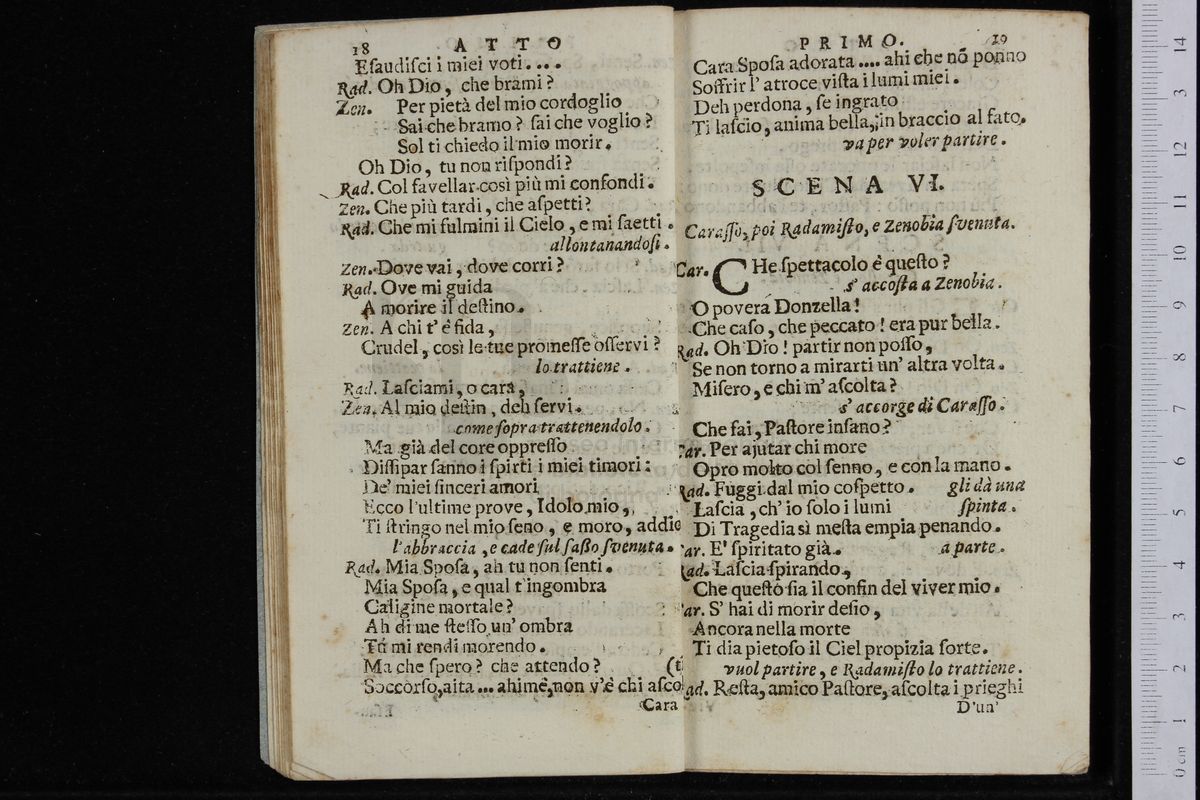 18 ATTO
Eſaudiſci i miei voti....
Rad. Oh Dio, che brami?
Zen. Per pietà del mio cordoglio
Sai che bramo? ſai che voglio?
Sol ti chiedo il mio morir.
Oh Dio, tu non riſpondi?
Rad. Col favellar così più mi confondi.
Zen. Che più tardi, che aſpetti?
Rad. Che mi fulmini il Cielo, e mi ſaetti.
allontanandoſi.
Zen. Dove vai, dove corri?
Rad. Ove mi guida
A morire il deſtino.
Zen. A chi t' è fida,
Crudel, così le tue promeſſe oſſervi?
lo trattiene.
Rad. Laſciami, o cara,
Zen. Al mio deſtin, deh ſervi.
come ſopra trattenendolo.
Ma già del core oppreſſo
Diſſipar ſanno i ſpirti i miei timori:
De' miei ſinceri amori
Ecco l'ultime prove, Idolo mio,
Ti ſtringo nel mio ſeno, e moro, addio
l'abbraccia, e cade ſul ſaßo ſvenuta.
Rad. Mia Spoſa, ah tu non ſenti.
Mia Spoſa, e qual t'ingombra
Caligine mortale?
Ah di me ſteſſo un' ombra
Tù mi rendi morendo.
Ma che ſpero? che attendo? (t
Soccorſo, aita ... ahimè, non v'è chi aſco
Cara
PRIMO. 19
Cara Spoſa adorata .... ahi che nō ponno
Soffrir l' atroce viſta i lumi miei.
Deh perdona, ſe ingrato
Ti laſcio, anima bella, in braccio al fato.
va per voler partire.
SCENA VI.
Caraſſo, poi Radamiſto, e Zenobia ſvenuta.
Car. CHe ſpettacolo è queſto?
s' accoſta a Zenobia.
O povera Donzella!
Che caſo, che peccato! era pur bella.
Rad. Oh Dio! partir non poſſo,
Se non torno a mirarti un' altra volta.
Miſero, e chi m' aſcolta?
s' accorge di Caraſſo.
Che fai, Paſtore inſano?
ar. Per ajutar chi more
Opro molto col ſenno, e con la mano.
Rad. Fuggi dal mio coſpetto. gli dà una
Laſcia, ch' io ſolo i lumi ſpinta.
Di Tragedia sì meſta empia penando.
ar. E' ſpiritato già. a parte.
Rad. Laſcia ſpirando,
Che queſto ſia il confin del viver mio.
ar. S' hai di morir deſio,
Ancora nella morte
Ti dia pietoſo il Ciel propizia ſorte.
vuol partire, e Radamiſto lo trattiene.
ad. Reſta, amico Paſtore, aſcolta i prieghi
D'un'